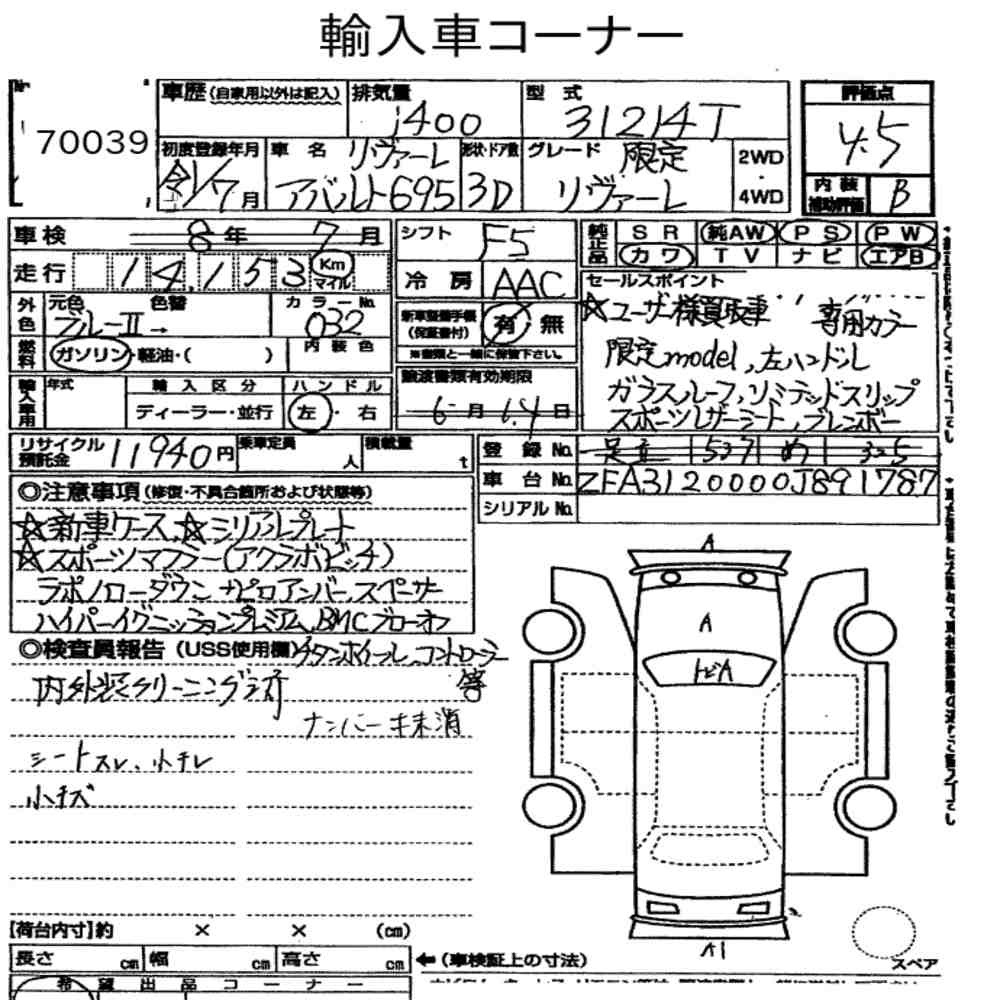 輸入車コーナー
70039
車歴(自家用以外は記入) 排気量 1400 型式 31214T 評価点 4.5
初度登録年月 令1/7月 車名 リヴァーレ アバルト695 形状・ドア数 3D グレード 限定 リヴァーレ 2WD・4WD 内装補助評価 B
車検 8年 7月 シフト F5 純正品 SR 純AW PS PW
カワ TV ナビ エアB
走行 14,153 Km マイル 冷房 AAC
セールスポイント
外色 元色 ブルーII→ 色替 カラーNo. 032
内装色
新車整備手帳(保証書付) 有・無
※書類と一緒に保管下さい。
☆ユーザー様買取車 専用カラー
限定model, 左ハンドル
ガラスルーフ, リミテッドスリップ
スポーツレザーシート, ブレンボー
燃料 ガソリン・軽油・( )
輸入車用 年式 輸入区分 ディーラー・並行 ハンドル 左・右
譲渡書類有効期限
6月 14日
リサイクル預託金 11940円 乗車定員 人 積載量 t
登録No. 足立 537 め 325
車台No. ZFA3120000J891787
シリアルNo.
◎注意事項(修復・不具合箇所および状態等)
☆新車ケース, ☆シリアルプレート
☆スポーツマフラー(アクラポビッチ)
ラポノローダウン ナピロアンバースペーサー
ハイパーイグニッションプレミアム, BMCブローオフ
◎検査員報告(USS使用欄) チタンホイール, コントローラー
等
内外装クリーニング済
ナンバー未抹消
シートスレ、小キレ
小キズ
A
A
トビA
A1
スペア
【荷台内寸】約 × × (cm)
長さ cm 幅 cm 高さ cm ←(車検証上の寸法)
希望出品コーナー